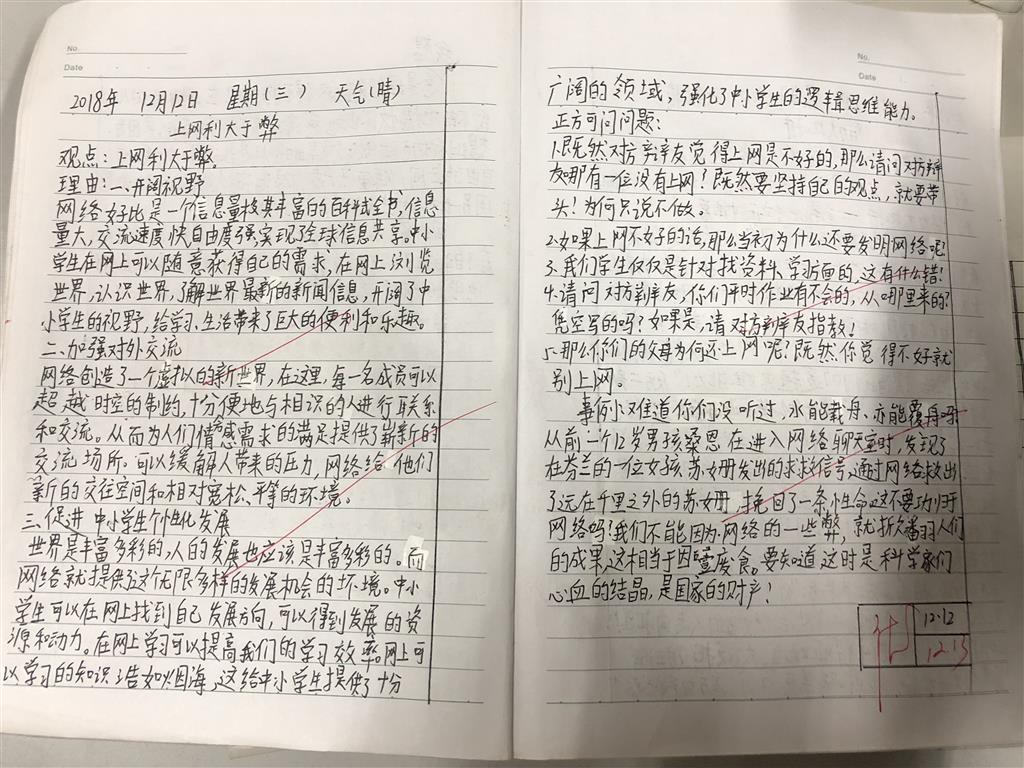 No.
Date
2018年 12月12日 星期(三) 天气(晴)
上网利大于弊
观点:上网利大于弊。
理由:一、开阔视野
网络好比是一个信息量极其丰富的百科式全书,信息
量大,交流速度快自由度强实现了全球信息共享。中小
学生在网上可以随意获得自己的需求,在网上浏览
世界,认识世界,了解世界最新的新闻信息,开阔了中
小学生的视野,给学习、生活带来了巨大的便利和乐趣。
二、加强对外交流
网络创造了一个虚拟的新世界,在这里,每一名成员可以
超越时空的制约,十分便地与相识的人进行联系
和交流。从而为人们情感需求的满足提供了崭新的
交流场所。可以缓解人带来的压力,网络给他们
新的交往空间和相对宽松、平等的环境。
三、促进中小学生个性化发展
世界是丰富多彩的,人的发展也应该是丰富多彩的。而
网络就提供了这个无限多样的发展机会的环境。中小
学生可以在网上找到自己发展方向,可以得到发展的资
源和动力。在网上学习可以提高我们的学习效率。网上可
以学习的知识浩如烟海,这给中小学生提供了十分
No.
Date
广阔的领域,强化了中小学生的逻辑思维能力。
正方可问问题:
1.既然对方辩友觉得上网是不好的,那么请问对方辩
友哪有一位没有上网!既然要坚持自己的观点,就要带
头!为何只说不做。
2.如果上网不好的话,那么当初为什么还要发明网络呢?
3.我们学生仅仅是针对找资料、学习方面的,这有什么错!
4.请问对方辩友,你们平时作业有不会的,从哪里来的?
凭空写的吗?如果是,请对方辩友指教!
5.那么你们的父母为何还上网呢?既然你觉得不好就
别上网。
事例:难道你们没听过,水能载舟、亦能覆舟吗
从前一个12岁男孩桑恩在进入网络聊天室时,发现了
在芬兰的一位女孩苏姗发出的求救信号,通过网络救出
了远在千里之外的苏姗,挽回了一条性命这不要功归于
网络吗?我们不能因为网络的一些弊,就折人们
的成果,这相当于因噎废食。要知道这时是科学家们
心血的结晶,是国家的财产!
12.12
12.13